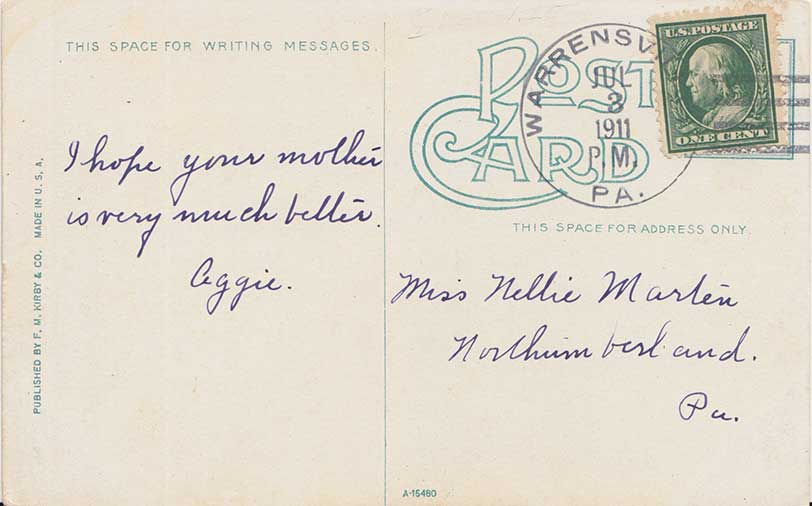 THIS SPACE FOR WRITING MESSAGES.
I hope your mother
is very much better.
Aggie.
PUBLISHED BY F. M. KIRBY & CO. MADE IN U. S. A.
POST
CARD
JUL
3
1911
P.M.
PA.
U.S. POSTAGE
ONE CENT
THIS SPACE FOR ADDRESS ONLY.
Miss Nellie Martin
Northumberland.
Pa.
A-15480